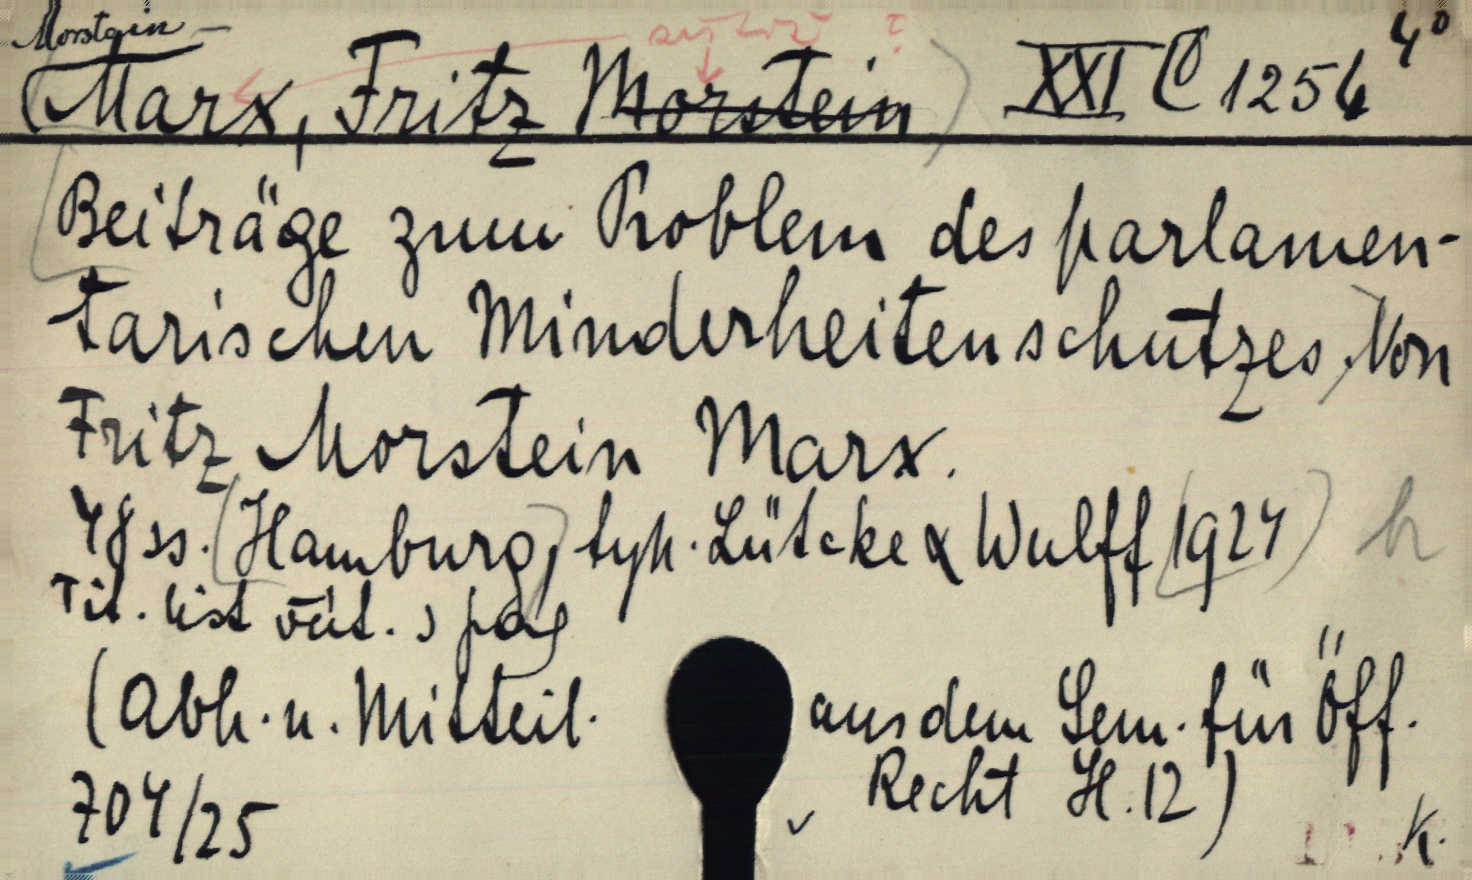 Morstein- ?
Marx, Fritz Morstein XXI C 1254 4°
Beiträge zum Problem des parlamen-
tarischen Minderheitenschutzes. Von
Fritz Morstein Marx.
48 ss. (Hamburg) typ. Lütcke & Wulff 1924 h
Tit.
(Abh. u. Mitteil. aus dem Sem. für Öff.
Recht H. 12)
704/25 K.